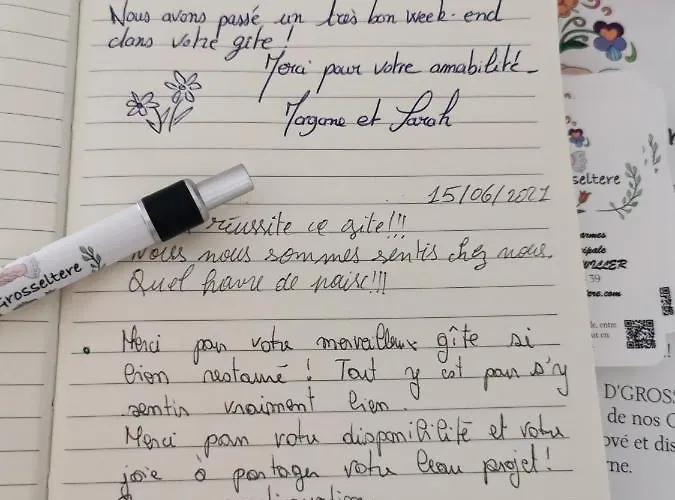 Nous avons passé un très bon week-end
dans votre gîte !
Merci pour votre amabilité -
Morgane et Sarah
15/06/2021
réussite ce gîte!!!
Nous nous sommes sentis chez nous.
Quel havre de paix!!!
Grosseltere
• Merci pour votre merveilleux gîte si
bien restauré ! Tout y est pour s'y
sentir vraiment bien.
Merci pour votre disponibilité et votre
joie à partager votre beau projet !
seltere
armes
ipale
WILLER
39
ere.com
D'GROS
de nos
ové et dis
ne.